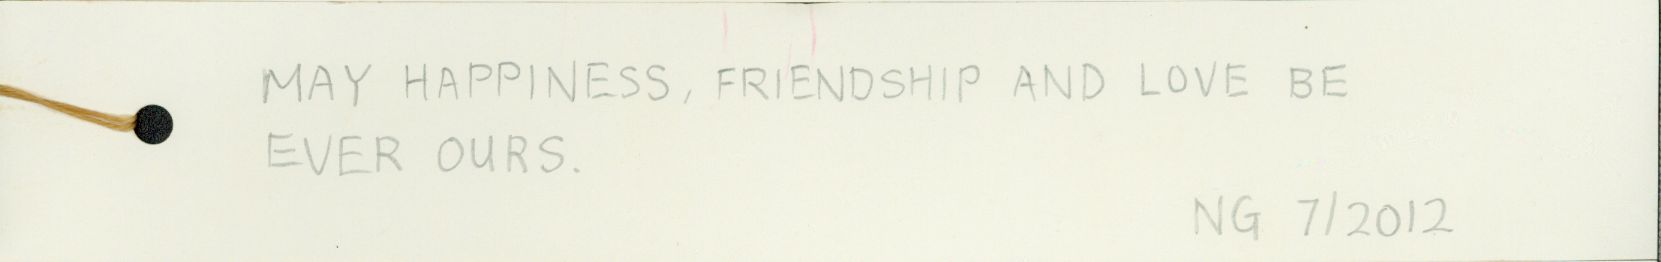 MAY HAPPINESS, FRIENDSHIP AND LOVE BE
EVER OURS.
NG 7/2012